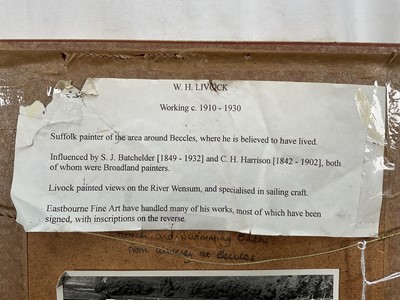 W. H. LIVOCK
Working c. 1910 - 1930
Suffolk painter of the area around Beccles, where he is believed to have lived.
Influenced by S. J. Batchelder [1849 - 1932] and C. H. Harrison [1842 - 1902], both
of whom were Broadland painters.
Livock painted views on the River Wensum, and specialised in sailing craft.
Eastbourne Fine Art have handled many of his works, most of which have been
signed, with inscriptions on the reverse.
old, swimming
from at Beccles